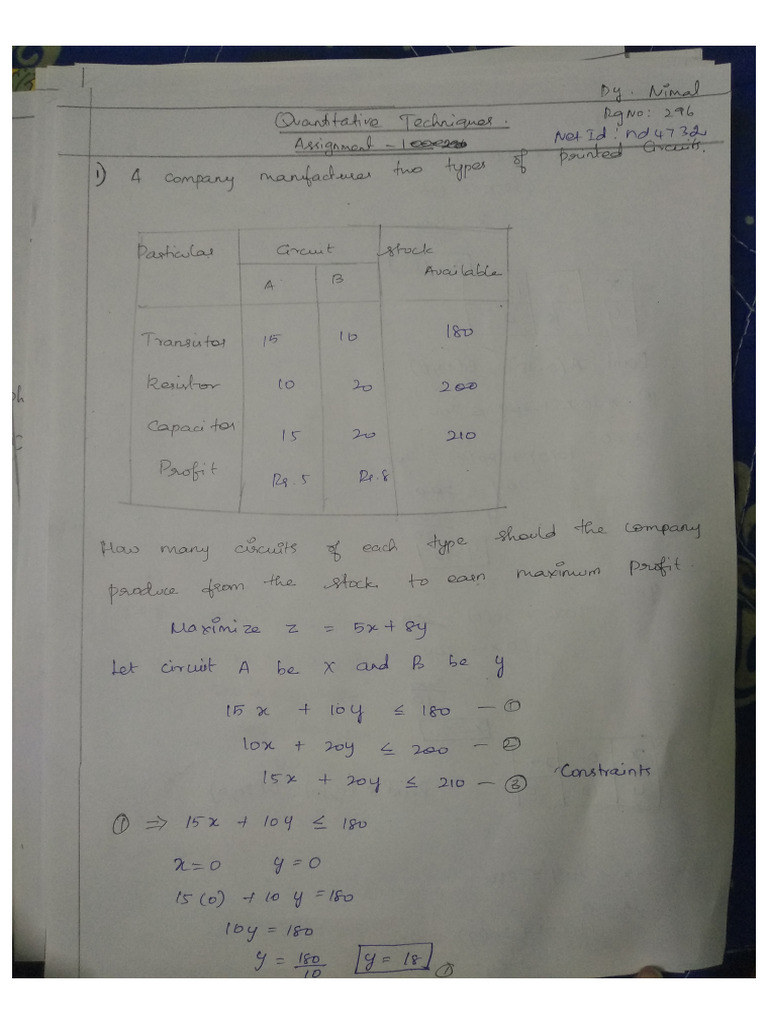 By. Nimal
Quantitative Techniques.
RgNo: 296
Assignment - 1
Net Id: nd4732
1) A company manufactures two types of printed circuits.
Particular Circuit Stock Available
A B
Transistor 15 10 180
Resistor 10 20 200
Capacitor 15 20 210
Profit Rs.5 Rs.8
How many circuits of each type should the company
produce from the stock to earn maximum profit.
Maximize z = 5x + 8y
Let circuit A be x and B be y
15x + 10y ≤ 180 - ①
10x + 20y ≤ 200 - ②
15x + 20y ≤ 210 - ③ Constraints
① ⇒ 15x + 10y ≤ 180
x=0 y=0
15(0) + 10y = 180
10y = 180
y = 180/10 y = 18 ①